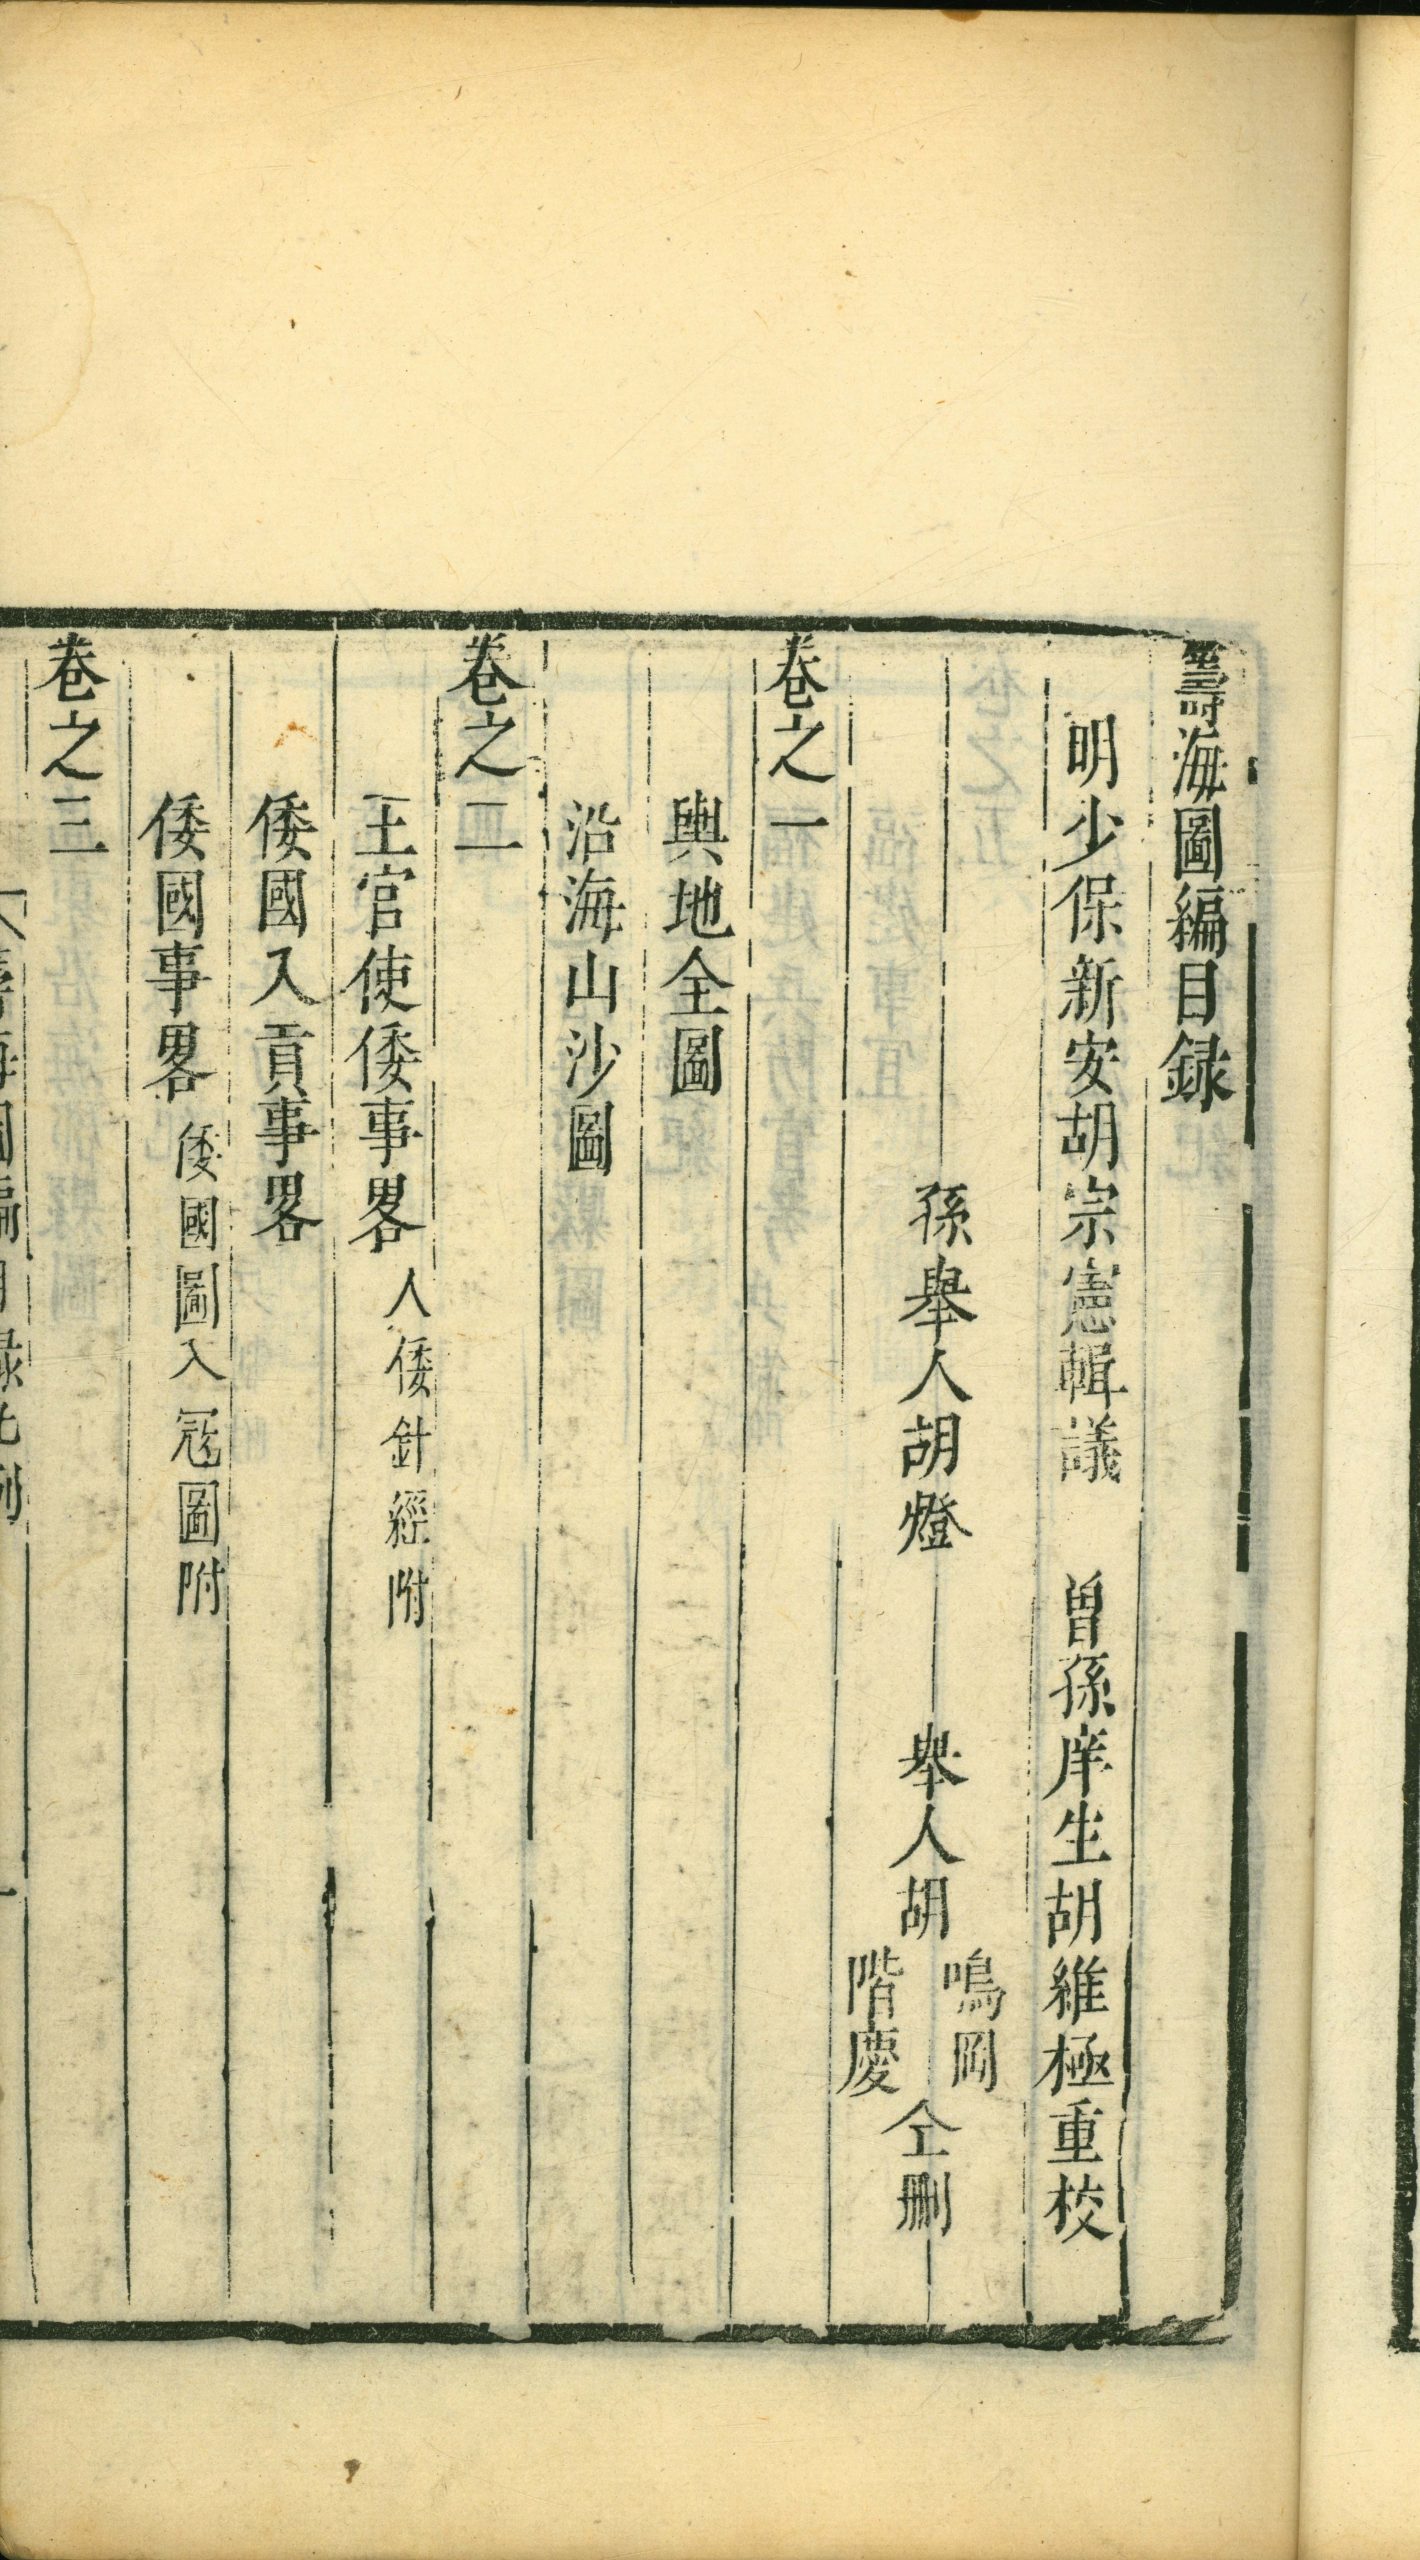 籌海圖編目録
明少保新安胡宗憲輯議　曾孫庠生胡維極重校
孫舉人胡燈　舉人胡鳴岡階慶仝刪
卷之一
輿地全圖
沿海山沙圖
卷之二
王官使倭事畧 人倭針經附
倭國入貢事畧
倭國事畧 倭國圖入宼圖附
卷之三